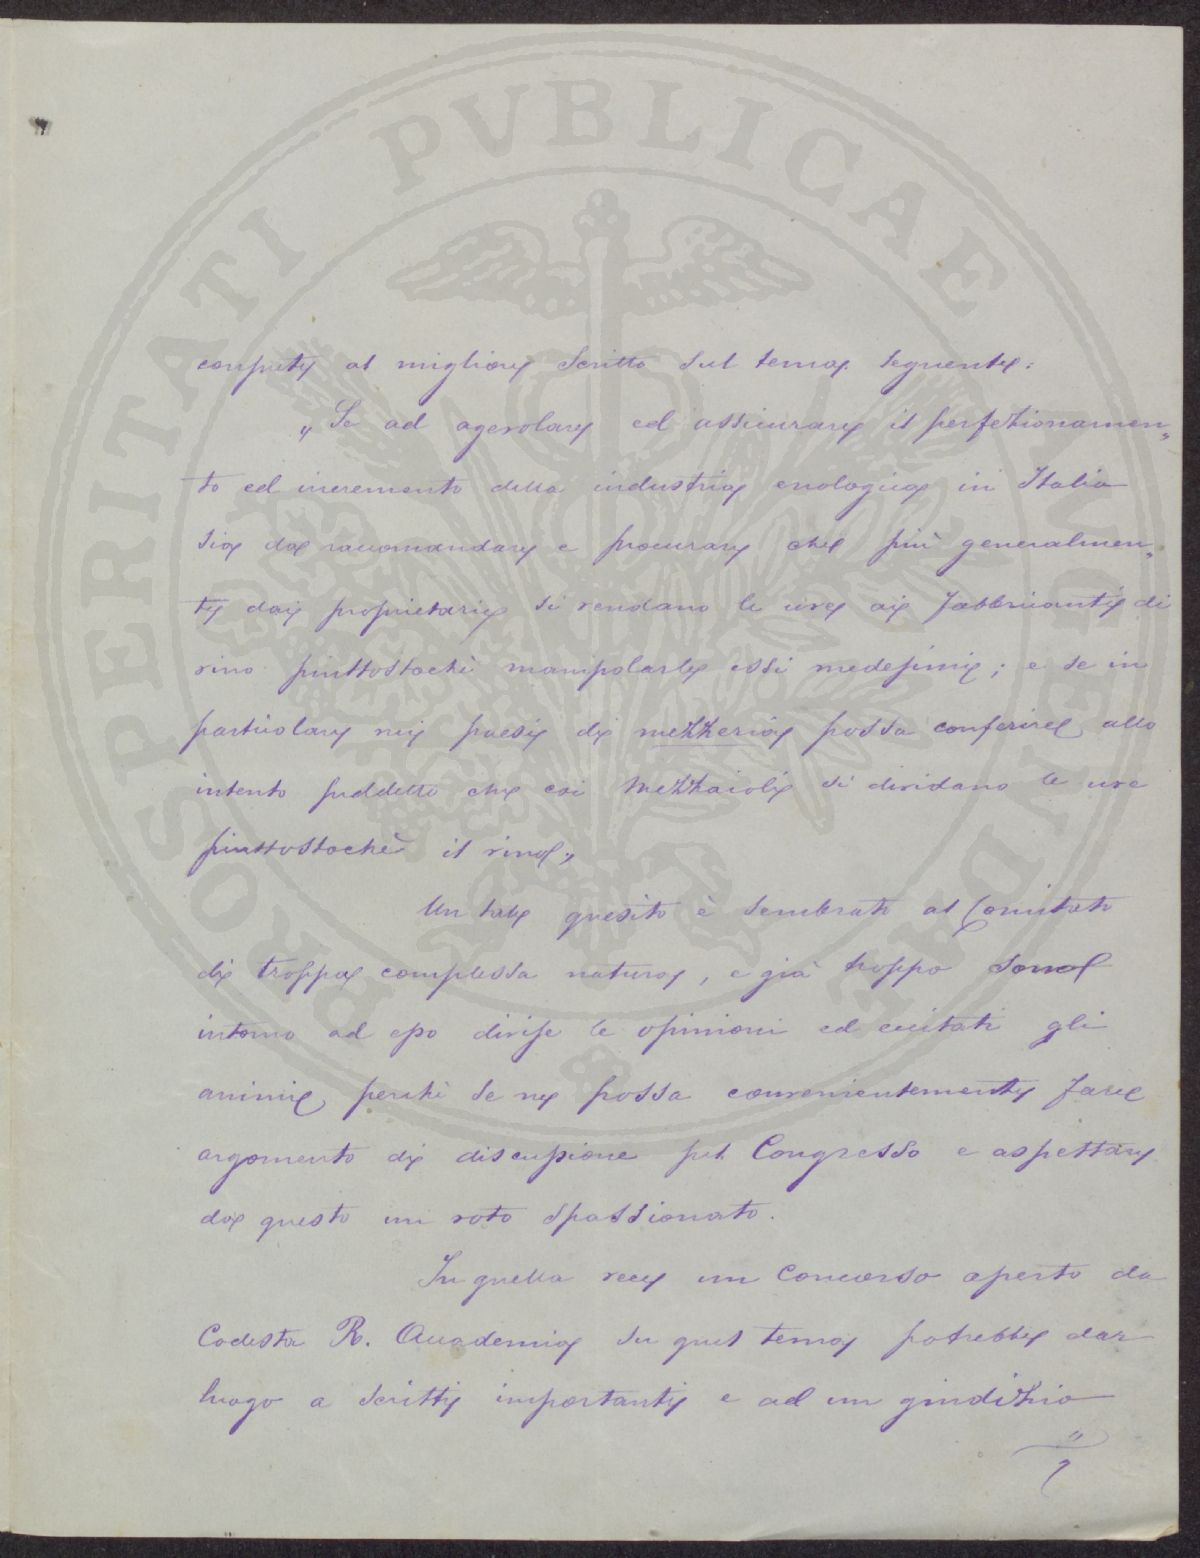 PROSPERITATI PVBLICAE
conferito al migliore scritto sul tema seguente:
„Se ad agevolare ed assicurare il perfezionamen„
to ed incremento della industria enologica in Italia
sia da raccomandare e procurare che più generalmen„
te dai proprietari si vendano le uve ai fabbricanti di
vino piuttostochè manipolarle essi medesimi; e se in
particolare nei paesi di mezzeria possa conferire allo
intento suddetto che coi mezzaioli si dividano le uve
piuttostochè il vino„
Un tale quesito è sembrato al Comitato
di troppa complessa natura, e già troppo sono
intorno ad esso divise le opinioni ed eccitati gli
animi, perchè se ne possa convenientemente fare
argomento di discussione pel Congresso e aspettare
da questo un voto spassionato.
In quella vece un Concorso aperto da
Codesta R. Accademia su quel tema potrebbe dar
luogo a scritti importanti e ad un giudizio